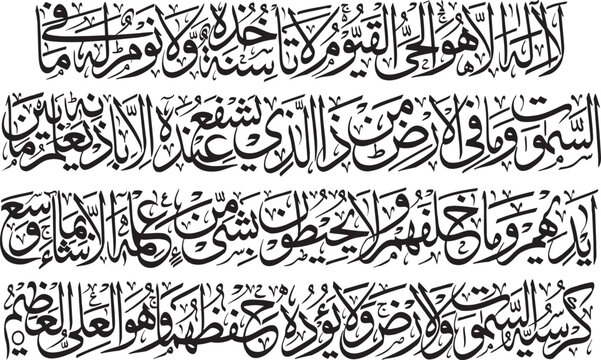 لا اله الا هو الحی القیوم لا تاخذه سنة ولا نوم له ما فی
السموت وما فی الارض من ذا الذی یشفع عنده الا باذنه یعلم ما بین
ایدیهم وما خلفهم ولا یحیطون بشیء من علمه الا بما شاء وسع
کرسیه السموت والارض ولا یؤده حفظهما وهو العلی العظیم